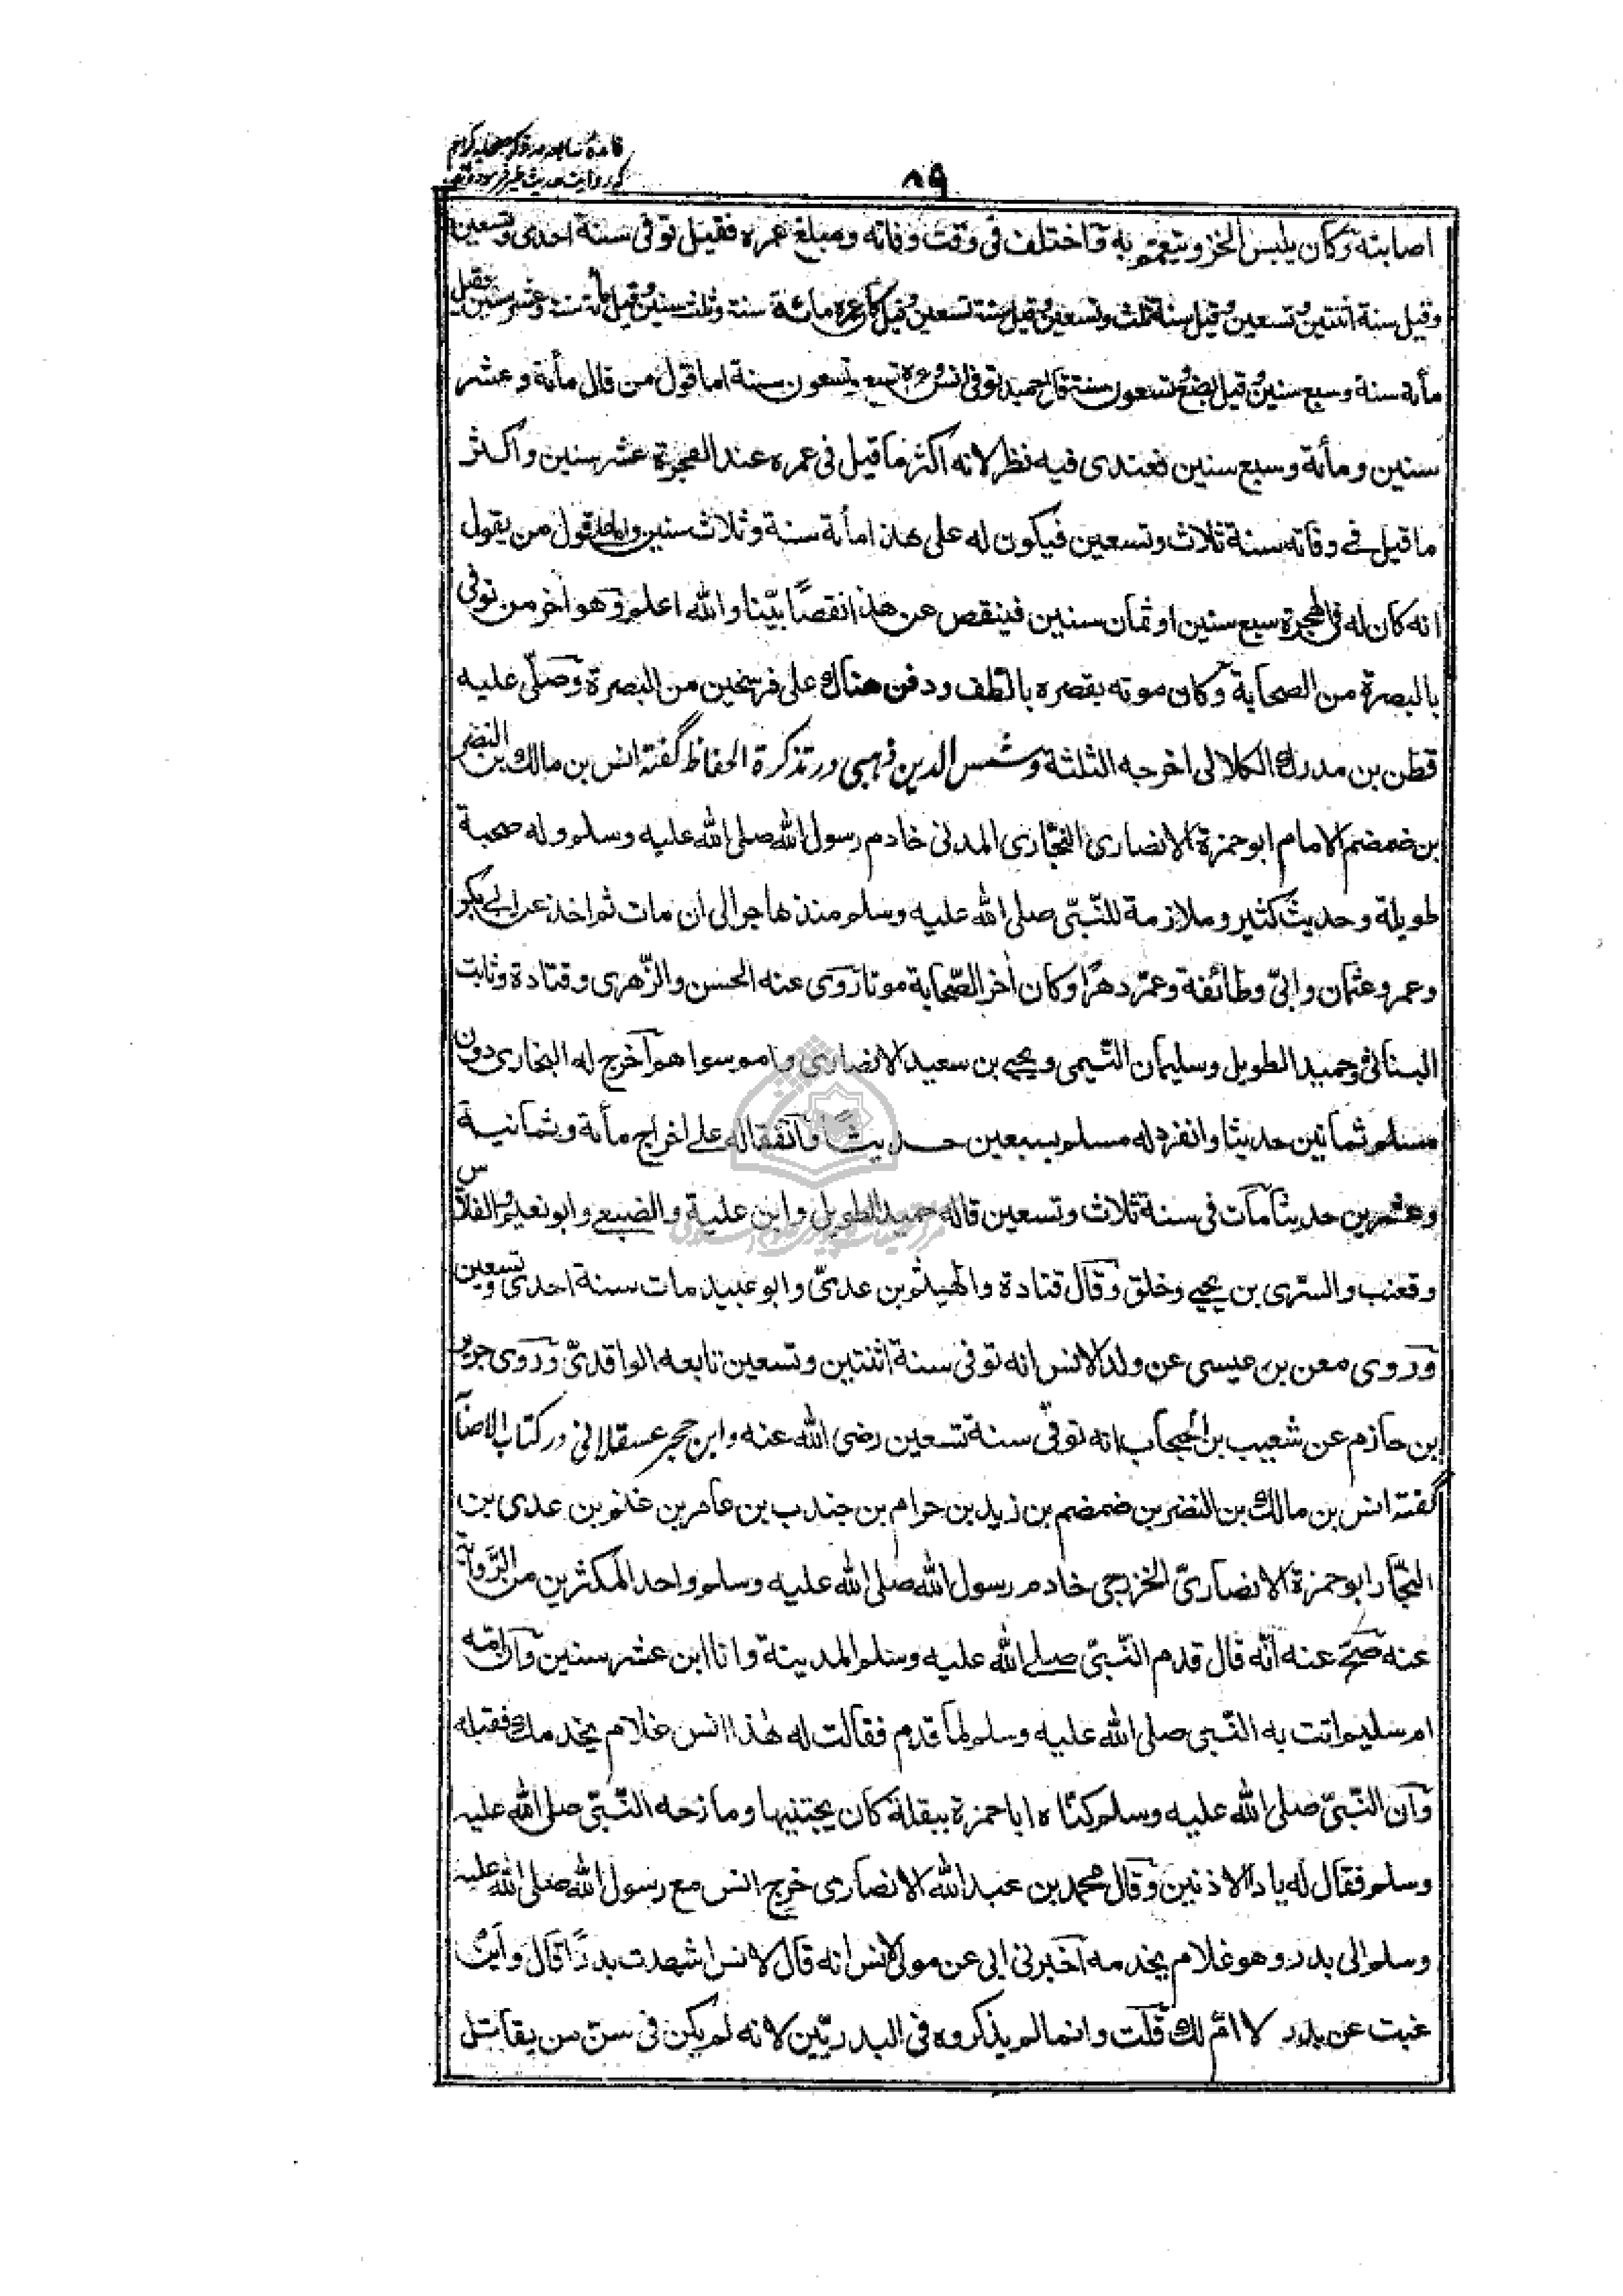 فائدهٔ سابعه در ذکر صحابه کرام
که روایت حدیث طیر فرموده‌اند
۸۹
اصابته وكان يلبس الخز ويتعمم به واختلف فى وقت وفاته ومبلغ عمره فقيل توفى سنة احدى وتسعين
وقيل سنة اثنتين وتسعين وقيل سنة ثلث وتسعين وقيل سنة تسعين وقيل كان عمره مائة سنة وثلث سنين وقيل مأة سنة وعشر سنين وقيل
مأة سنة وسبع سنين وقيل بضع وتسعون سنة قال حميد توفى انس وعمره تسع وتسعون سنة اما قول من قال مأة وعشر
سنين ومأة وسبع سنين فعندى فيه نظر لانه اكثر ما قيل فى عمره عند الهجرة عشر سنين واكثر
ما قيل فى وفاته سنة ثلاث وتسعين فيكون له على هذا مأة سنة وثلاث سنين واما على قول من يقول
انه كان له فى الهجرة سبع سنين او ثمان سنين فينقص عن هذا نقصًا بيّنا والله اعلم وهو آخر من توفى
بالبصرة من الصحابة وكان موته بقصره بالطف ودفن هناك على فرسخين من البصرة وصلّى عليه
قطن بن مدرك الكلابى اخرجه الثلثة وشمس الدين ذهبى در تذكرة الحفاظ گفته انس بن مالك بن النضر
بن ضمضم الامام ابو حمزة الانصارى النجّارى المدنى خادم رسول الله صلى الله عليه وسلم وله صحبة
طويلة وحديث كثير وملازمة للنّبىّ صلى الله عليه وسلم منذ هاجر الى ان مات ثم اخذ عن ابى بكر
وعمر وعثمان وابىّ وطائفة وعمّر دهرًا وكان آخر الصّحابة موتا روى عنه الحسن والزّهرى وقتادة وثابت
البنانى وحميد الطويل وسليمان التّيمى ويحيى بن سعيد الانصارى وامم سواهم اخرج له البخارى دون
مسلم ثمانين حديثا وانفرد له مسلم بسبعين حديثًا واتفقا له على اخراج مأة وثمانية
وعشرين حديثا مات فى سنة ثلاث وتسعين قاله حميد الطويل وابن علية والضبعى وابو نعيم والفلّاس
وقعنب والسّرى بن يحيى وخلق وقال قتادة والهيثم بن عدىّ وابو عبيد مات سنة احدى وتسعين
وروى معن بن عيسى عن ولد لانس انه توفى سنة اثنتين وتسعين تابعه الواقدىّ وروى جرير
بن حازم عن شعيب بن الحبحاب انه توفّى سنة تسعين رضى الله عنه وابن حجر عسقلانى در كتاب الاصا
گفته انس بن مالك بن النضر بن ضمضم بن زيد بن حرام بن جندب بن عامر بن غنم بن عدى بن
النجّار ابو حمزة الانصارىّ الخزرجى خادم رسول الله صلى الله عليه وسلم واحد المكثرين من الرّواية
عنه صحّ عنه انّه قال قدم النّبىّ صلى الله عليه وسلم المدينة وانا ابن عشر سنين وان امّه
ام سليم اتت به النّبى صلى الله عليه وسلم لما قدم فقالت له هذا انس غلام يخدمك فقبله
وان النّبىّ صلى الله عليه وسلم كنّاه ابا حمزة ببقلة كان يجتنيها ومازحه النّبىّ صلى الله عليه
وسلم فقال له يا ذا الاذنين وقال محمد بن عبد الله الانصارى خرج انس مع رسول الله صلى الله عليه
وسلم الى بدر وهو غلام يخدمه اخبرنى ابى عن مولى لانس انه قال لانس اشهدت بدرًا قال واين
غبت عن بدر لا امّ لك قلت وانما لم يذكروه فى البدريّين لانه لم يكن فى سنّ من يقاتل